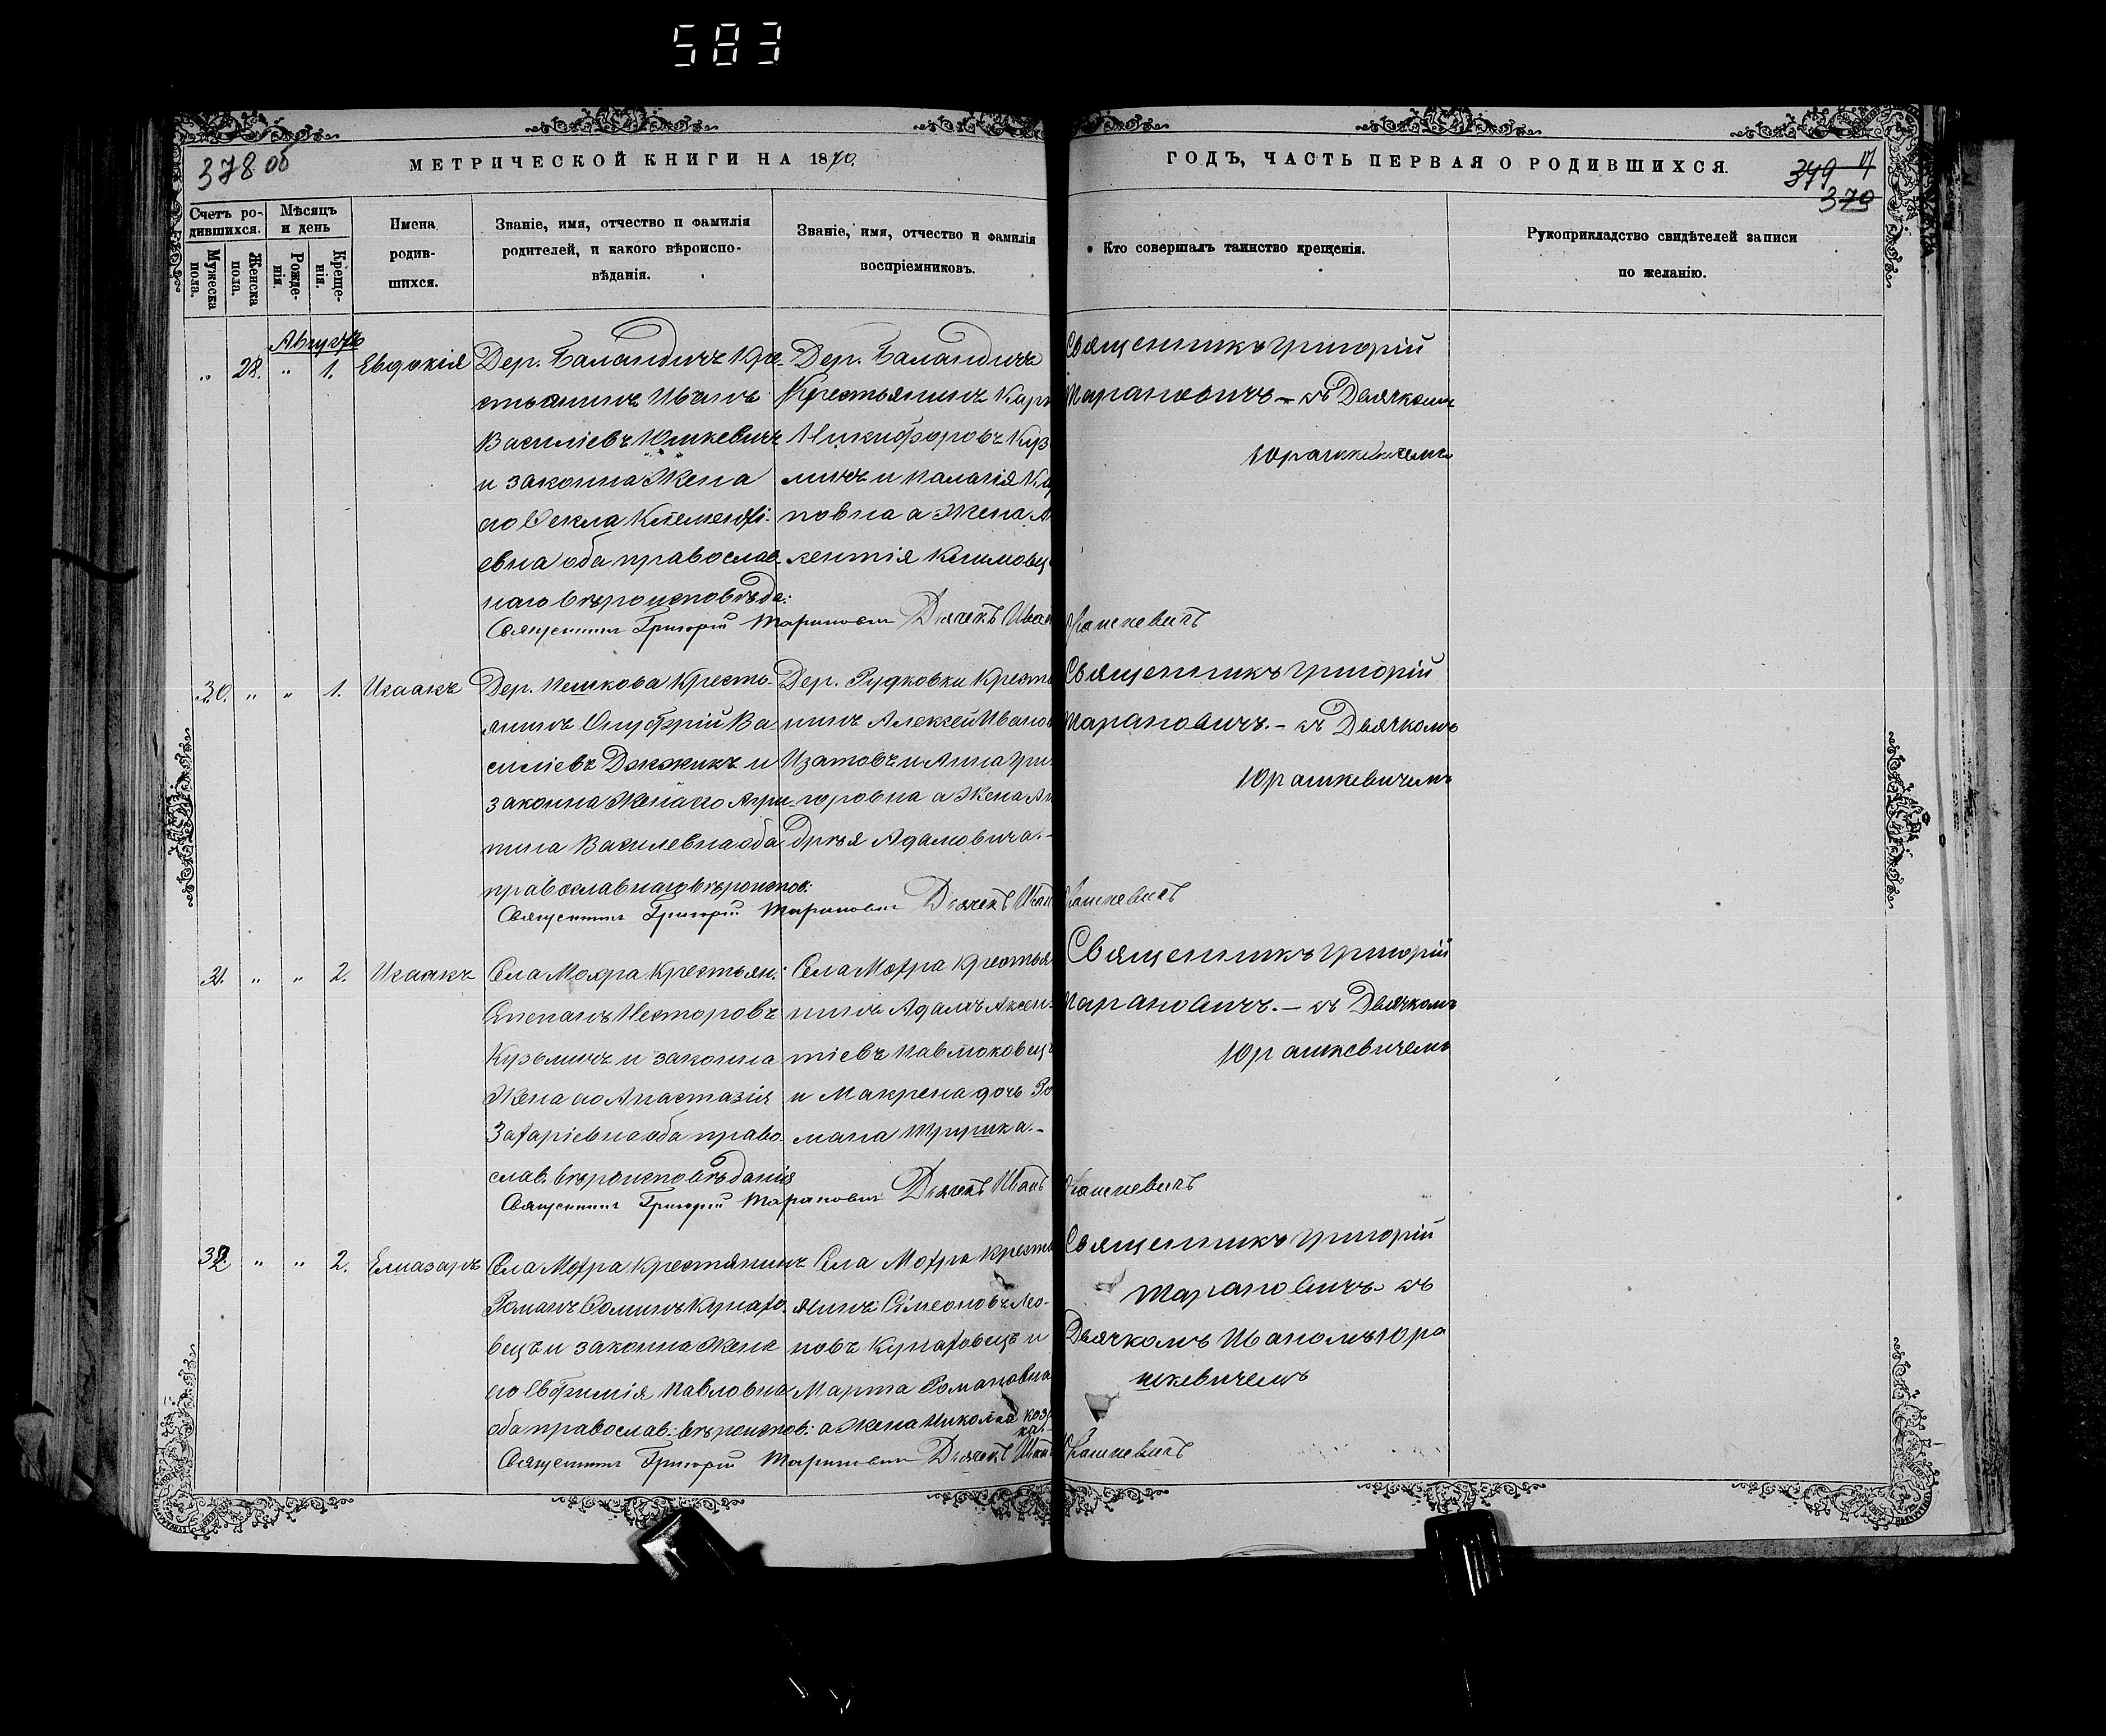 583
378 об
МЕТРИЧЕСКОЙ КНИГИ НА 1870.
ГОДЪ, ЧАСТЬ ПЕРВАЯ О РОДИВШИХСЯ.
379
Счетъ родившихся.
Мужеска пола.
Женска пола.
Мѣсяцъ и день
Рожденія.
Крещенія.
Имена родившихся.
Званіе, имя, отчество и фамилія
родителей, и какого вѣроиспо-
вѣданія.
Званіе, имя, отчество и фамилія
воспріемниковъ.
Кто совершалъ таинство крещенія.
Рукоприкладство свидѣтелей записи
по желанію.
Августъ
„ 28. „ 1. Евдокія
Дер. Баландичъ Кре-
стьянинъ Иванъ
Василіевъ Юшкевичъ
и законна Жена
его Ѳекла Клементі-
евна оба православ-
наго вѣроисповѣда:
Дер. Баландичъ
Крестьянинъ Карп
Никифоровъ Куз
мичъ и Палагія Ка
повна а Жена А
кентія Климовец
Священникъ Григорій
Тарановичъ – съ Дьячкомъ
Юрашкевичемъ
Священникъ Григорій Тарановичъ Дьячекъ Иван рашкевичъ
30. „ „ 1. Исаакъ
Дер. Пешкова Кресть-
янинъ Онуфрій Ва-
силіевъ Дежикъ и
законна Жена его Агри-
пина Василевна оба
православнаго вѣроиспов:
Дер. Рудковки Кресть
нинъ Алексей Иванов
Изатовъ и Анна Гри-
горовна а Жена Ан
дрея Адамовича.-
Священникъ Григорій
Тарановичъ. – съ Дьячкомъ
Юрашкевичемъ
Священникъ Григорій Тарановичъ Дьячекъ Иван рашкевичъ
31. „ „ 2. Исаакъ
Села Мохра Крестьян:
Степанъ Несторовъ
Кузьмичъ и законна
Жена его Анастазія
Захаріевна оба право
слав. вѣроисповѣданія
Села Мохра Крестья
нинъ Адамъ Аксен-
тіевъ Павлюковецъ
и Макрена дочь Ро
мана Трушка.-
Священникъ Григорій
Тарановичъ. – съ Дьячкомъ
Юрашкевичемъ
Священникъ Григорій Тарановичъ Дьячекъ Иванъ рашкевичъ
32 „ „ 2. Елиазаръ
Села Мохра Крестянинъ
Романъ Ѳоминъ Кунахо-
вецъ и законна Жена
его Евфимія Павловна
оба православ: вѣроиспов:
Села Мохра Кресть
янинъ Сімеоновъ
Кунаховецъ и
Марта Романовна
а Жена Николая Коз
ка.-
Священникъ Григорій
Тарановичъ съ
Дьячкомъ Иваномъ Юра
шкевичемъ
Священникъ Григорій Тарановичъ Дьячекъ Иван рашкевичъ